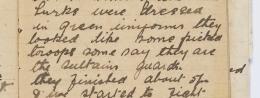 Turks were dressed
in green uniforms they
looked like some picked
troops some say they are
the sultains guards
they finished about 6 p
& we started to fight